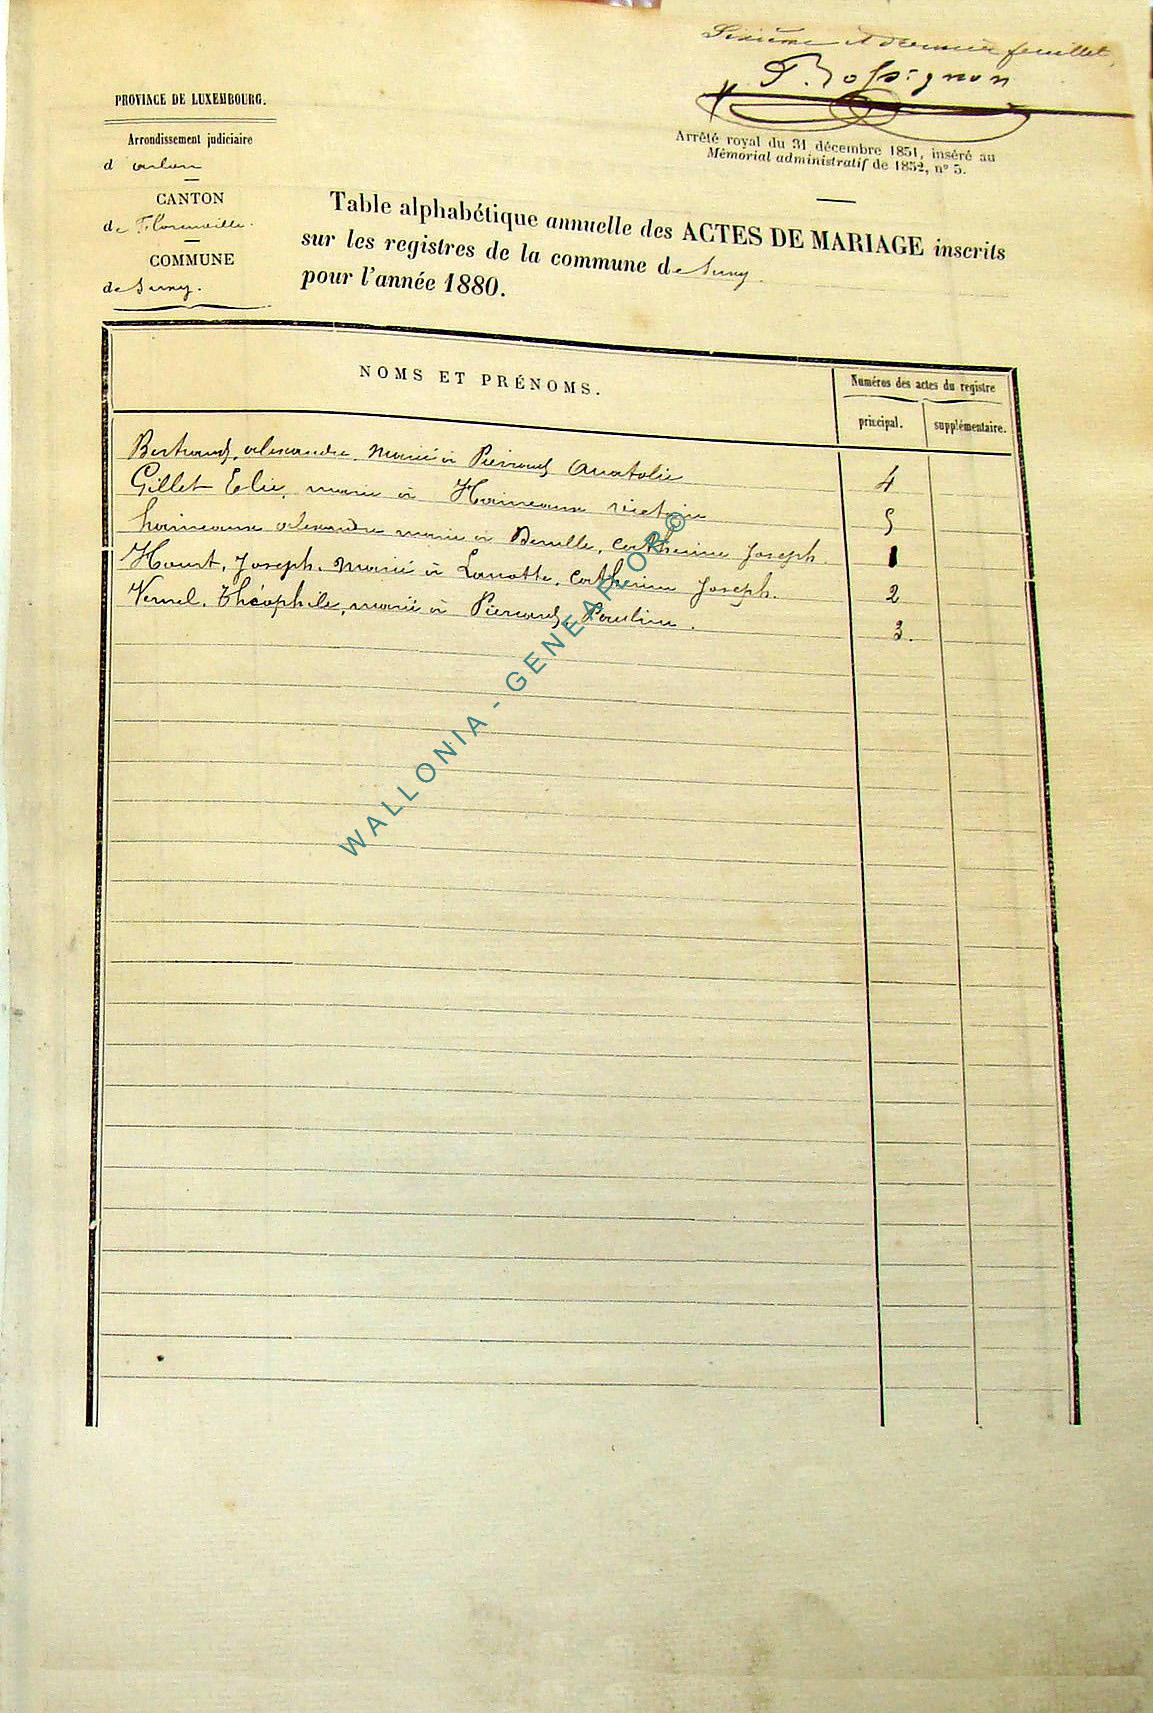 Sixième et dernier feuillet,
T. Rossignon
PROVINCE DE LUXEMBOURG.
Arrondissement judiciaire
d'arlon
CANTON
de Florenville.
COMMUNE
de Suxy.
Arrêté royal du 31 décembre 1851, inséré au
Mémorial administratif de 1852, nº 5.
Table alphabétique annuelle des ACTES DE MARIAGE inscrits
sur les registres de la commune de Suxy
pour l'année 1880.
NOMS ET PRÉNOMS.
Numéros des actes du registre
principal. supplémentaire.
Bertrand, alexandre, marié à Pierrard Anatolie 4
Gillet Elie, marié à Haineaux victoire 5
haineaux alexandre marié à catherine Joseph. 1
Joseph. Marié à Lanotte, catherine Joseph. 2
Théophile, marié à Pierrard, Pauline. 3.
WALLONIA - GENEAPLOR©